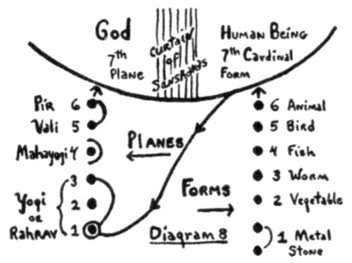 God
7th
Plane
CURTAIN
OF
SANSKARAS
HUMAN BEING
7th CARDINAL
FORM
PIR 6
Vali 5
Mahayogi 4
3
Yogi 2
OR
RAHRAV 1
PLANES
FORMS
Diagram 8
6 Animal
5 Bird
4 Fish
3 Worm
2 Vegetable
1 Metal
Stone